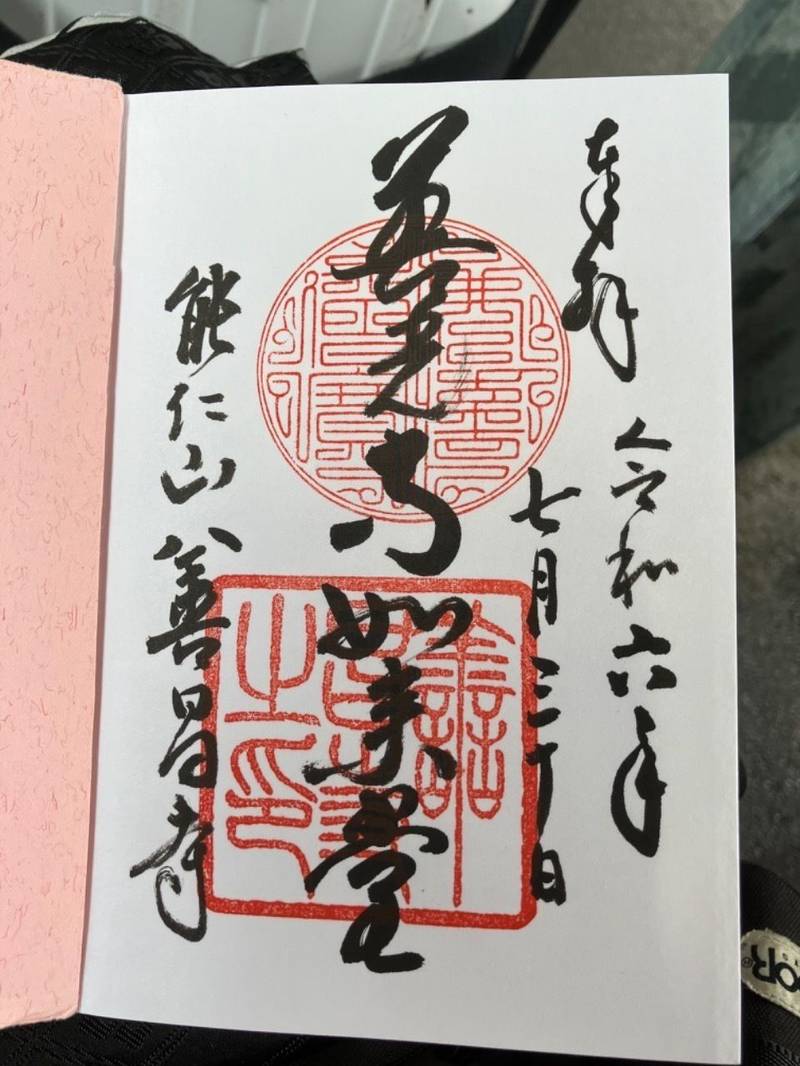 奉拝
令和六年
七月三十日
善光寺如来堂
能仁山 善昌寺